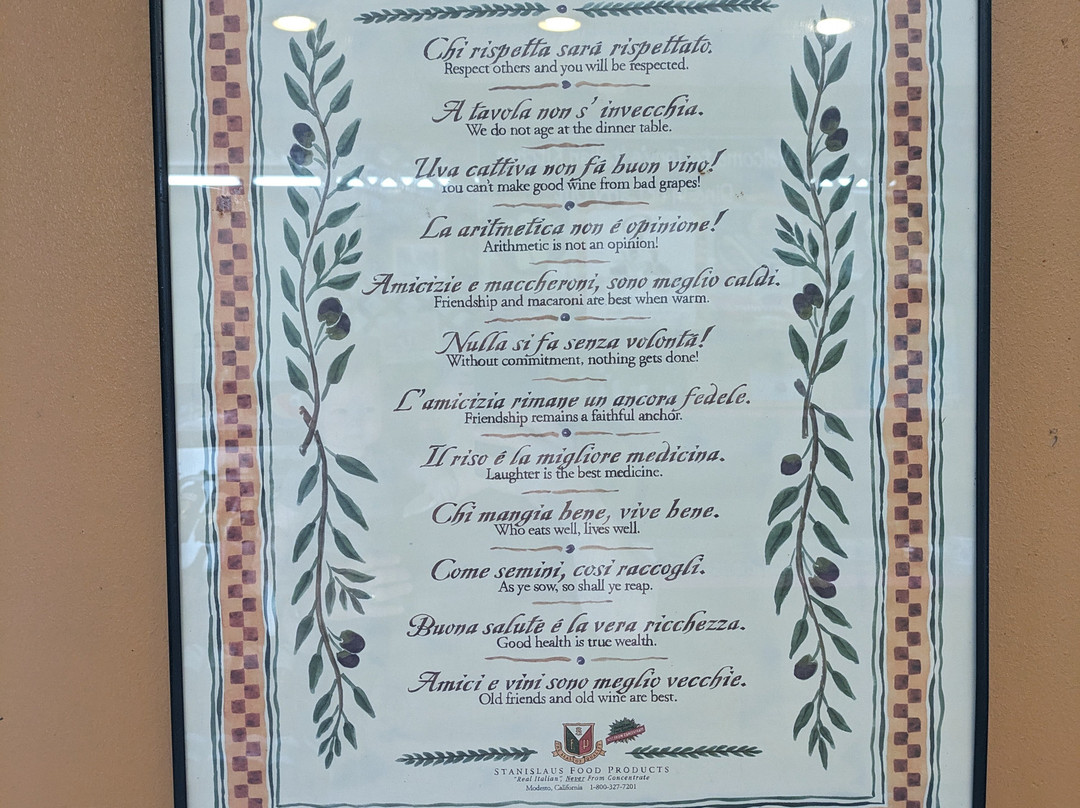 Chi rispetta sará rispettato.
Respect others and you will be respected.
A tavola non s' invecchia.
We do not age at the dinner table.
Uva cattiva non fá buon vino!
You can't make good wine from bad grapes!
La aritmetica non é opinione!
Arithmetic is not an opinion!
Amicizie e maccheroni, sono meglio caldi.
Friendship and macaroni are best when warm.
Nulla si fa senza volontá!
Without commitment, nothing gets done!
L'amicizia rimane un ancora fedele.
Friendship remains a faithful anchor.
Il riso é la migliore medicina.
Laughter is the best medicine.
Chi mangia bene, vive bene.
Who eats well, lives well.
Come semini, cosi raccogli.
As ye sow, so shall ye reap.
Buona salute é la vera ricchezza.
Good health is true wealth.
Amici e vini sono meglio vecchie.
Old friends and old wine are best.
STANISLAUS FOOD PRODUCTS
"Real Italian", Never From Concentrate
Modesto, California 1-800-327-7201